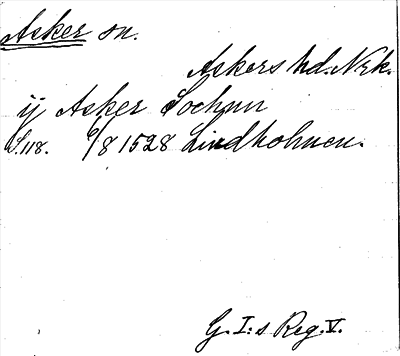 Asker sn.
Askers hd. Nrk.
ij Asker Sochnn
S. 118. 6/8 1528 Lindholmen.
G. I:s Reg. V.